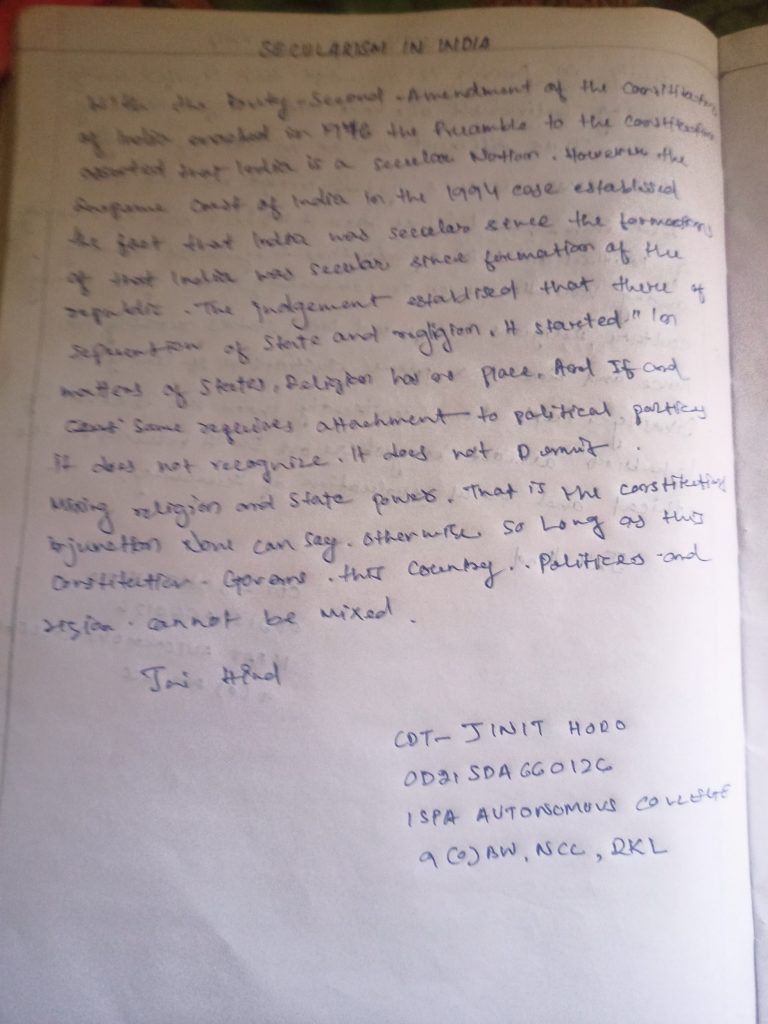 SECULARISM IN INDIA
With the Fourty-Second-Amendment of the Constitution
of India enacted in 1976 the Preamble to the Constitution
asserted that India is a secular Nation. However the
Supreme Court of India in the 1994 case established
the fact that India was secular since the formation
of that India was secular since formation of the
republic. The judgement establised that there of
Separation of State and religion. It started "In
matters of States, Religion has no place. And If and
Same requires attachment to political parties
it does not recognize. It does not Permit.
Mixing religion and State power. That is the constitution
injunction None can Say. otherwise So Long as this
Constitution. Governs. this Country.. Politices and
cannot be mixed.
Jai Hind
CDT- JINIT HORO
ISPA AUTONOMOUS COLLEGE
BN, NCC, RKL